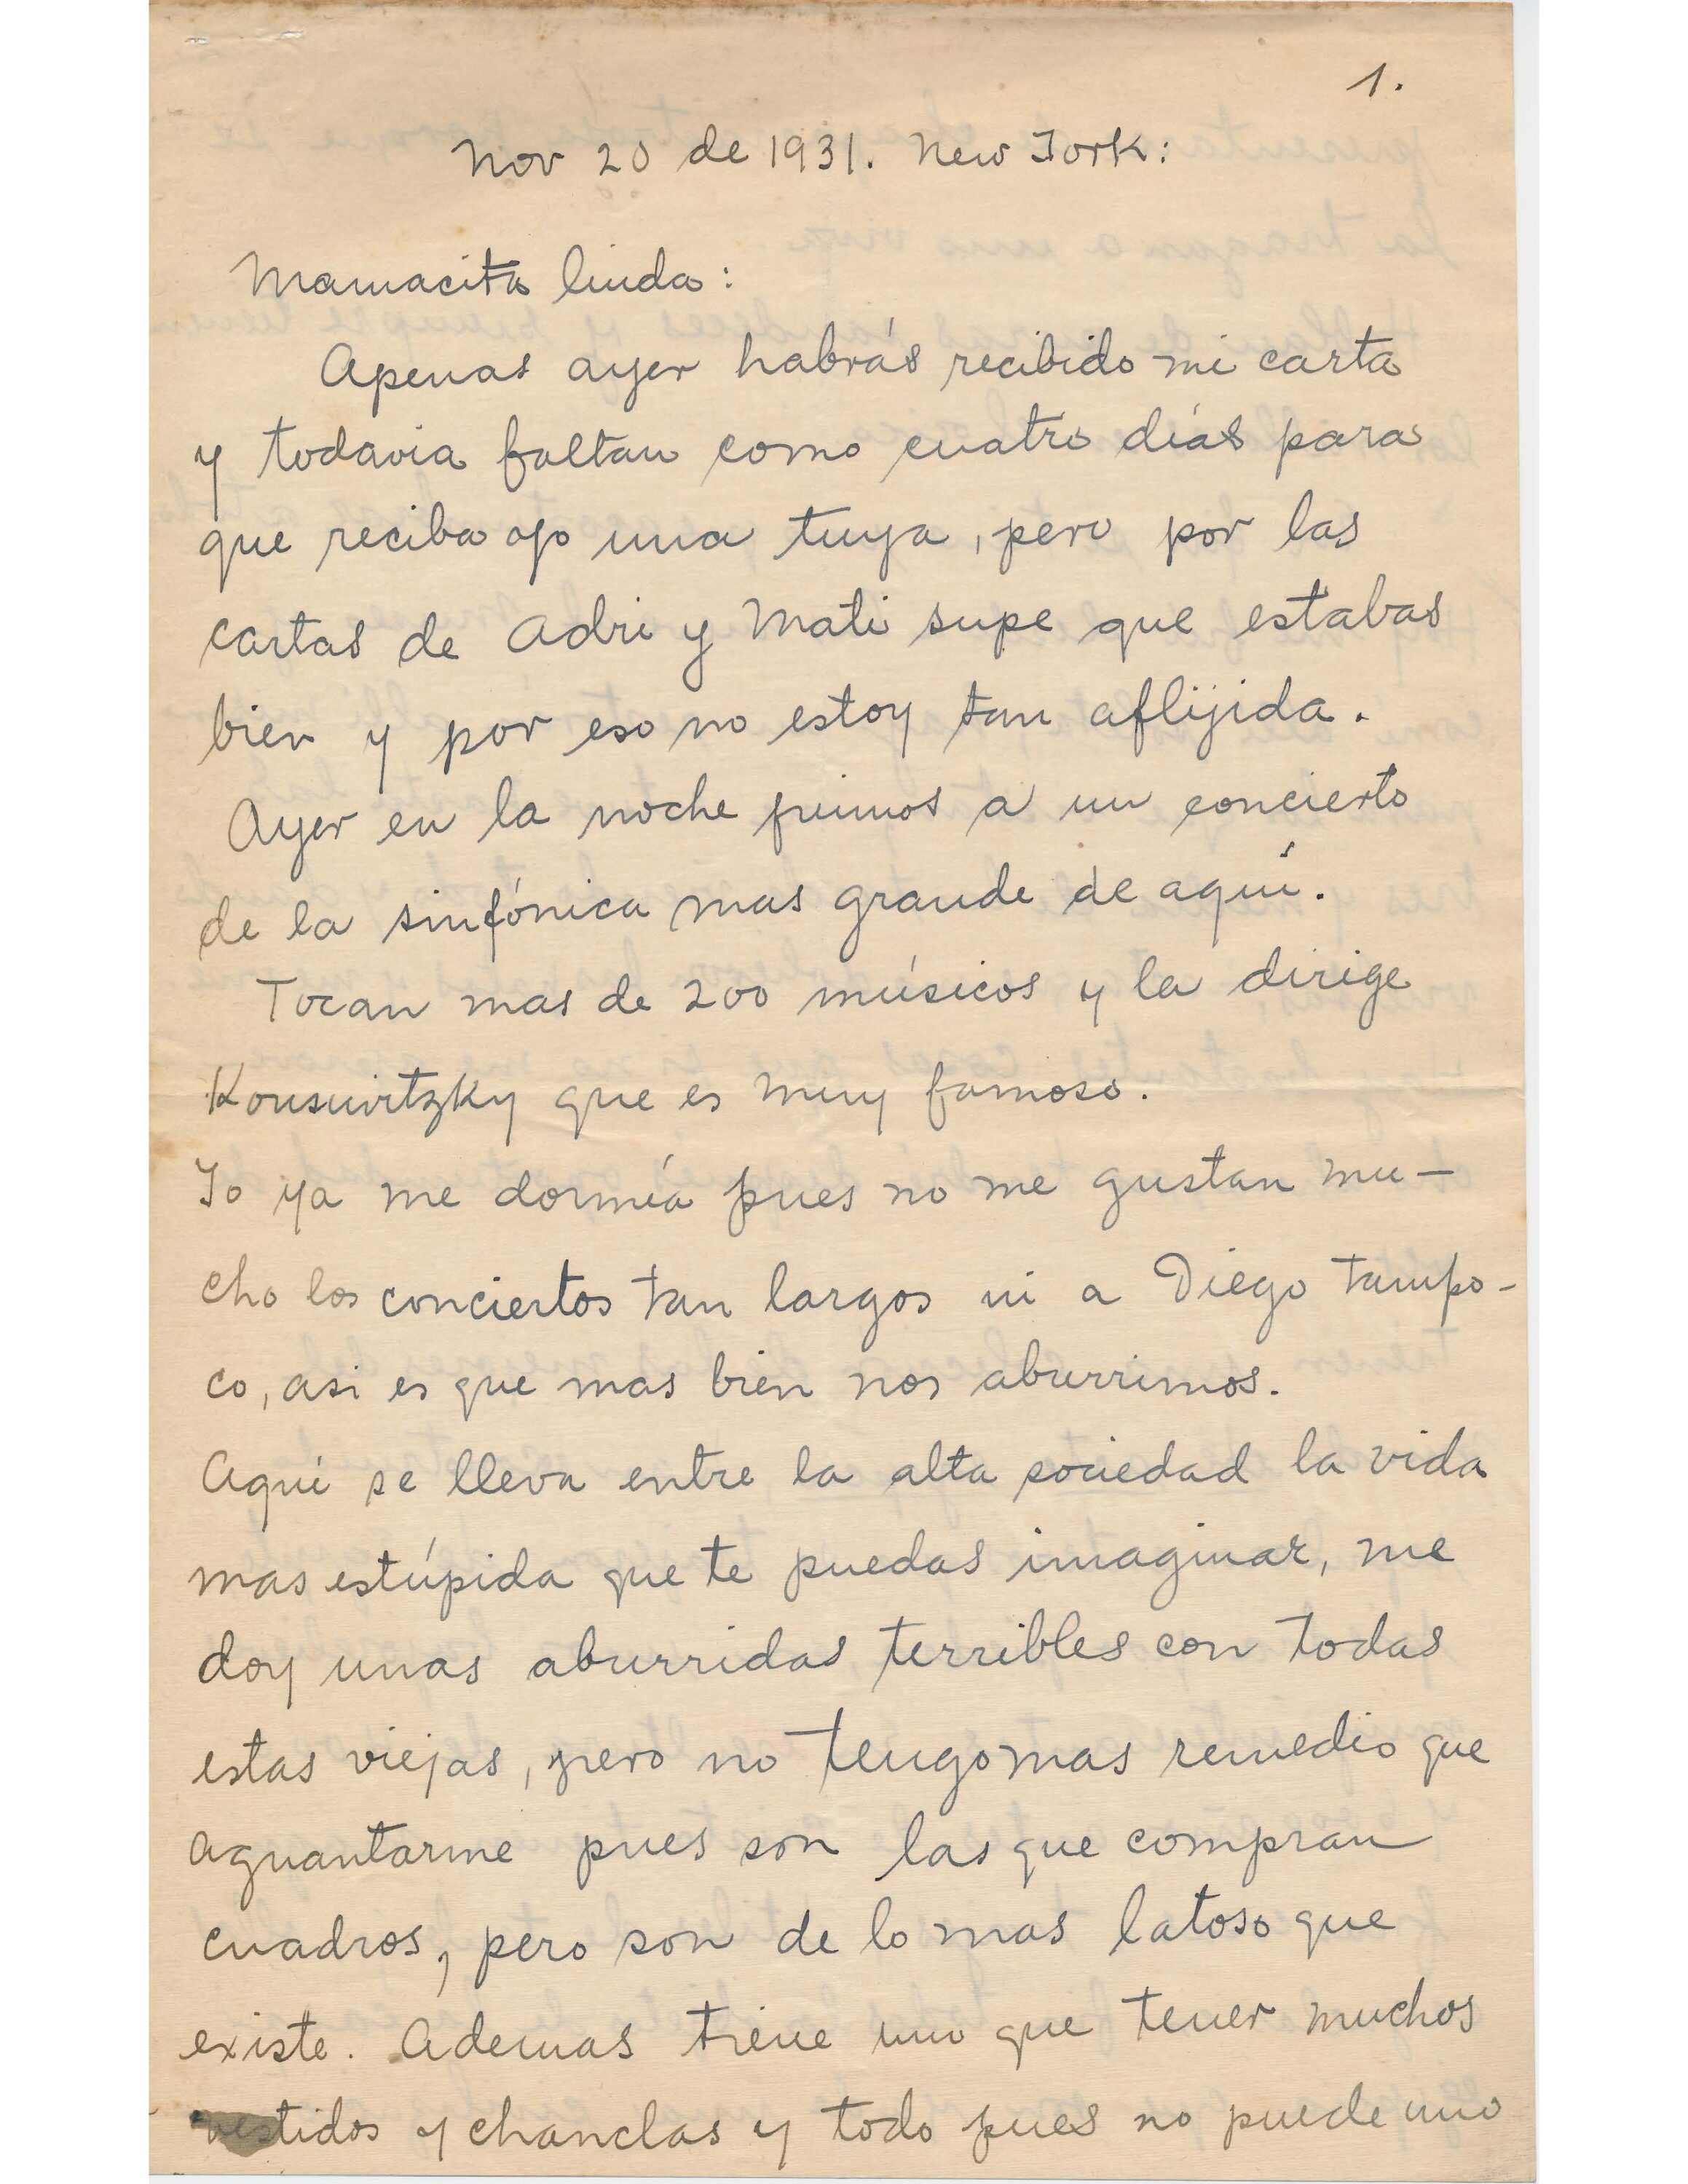 1.
Nov 20 de 1931. New York:
Mamacita linda:
Apenas ayer habrás recibido mi carta
y todavia faltan como cuatro días para
que reciba yo una tuya, pero por las
cartas de Adri y Mati supe que estabas
bien y por eso no estoy tan aflijida.
Ayer en la noche fuimos a un concierto
de la sinfónica mas grande de aquí.
Tocan mas de 200 músicos y la dirige
Kousuvitzky que es muy famoso.
Yo ya me dormía pues no me gustan mu-
cho los conciertos tan largos ni a Diego tampo-
co, asi es que mas bien nos aburrimos.
Aquí se lleva entre la alta sociedad la vida
mas estúpida que te puedas imaginar, me
doy unas aburridas terribles con todas
estas viejas, pero no tengo mas remedio que
aguantarme pues son las que compran
cuadros, pero son de lo mas latoso que
existe. Ademas tiene uno que tener muchos
vestidos y chanclas y todo pues no puede uno